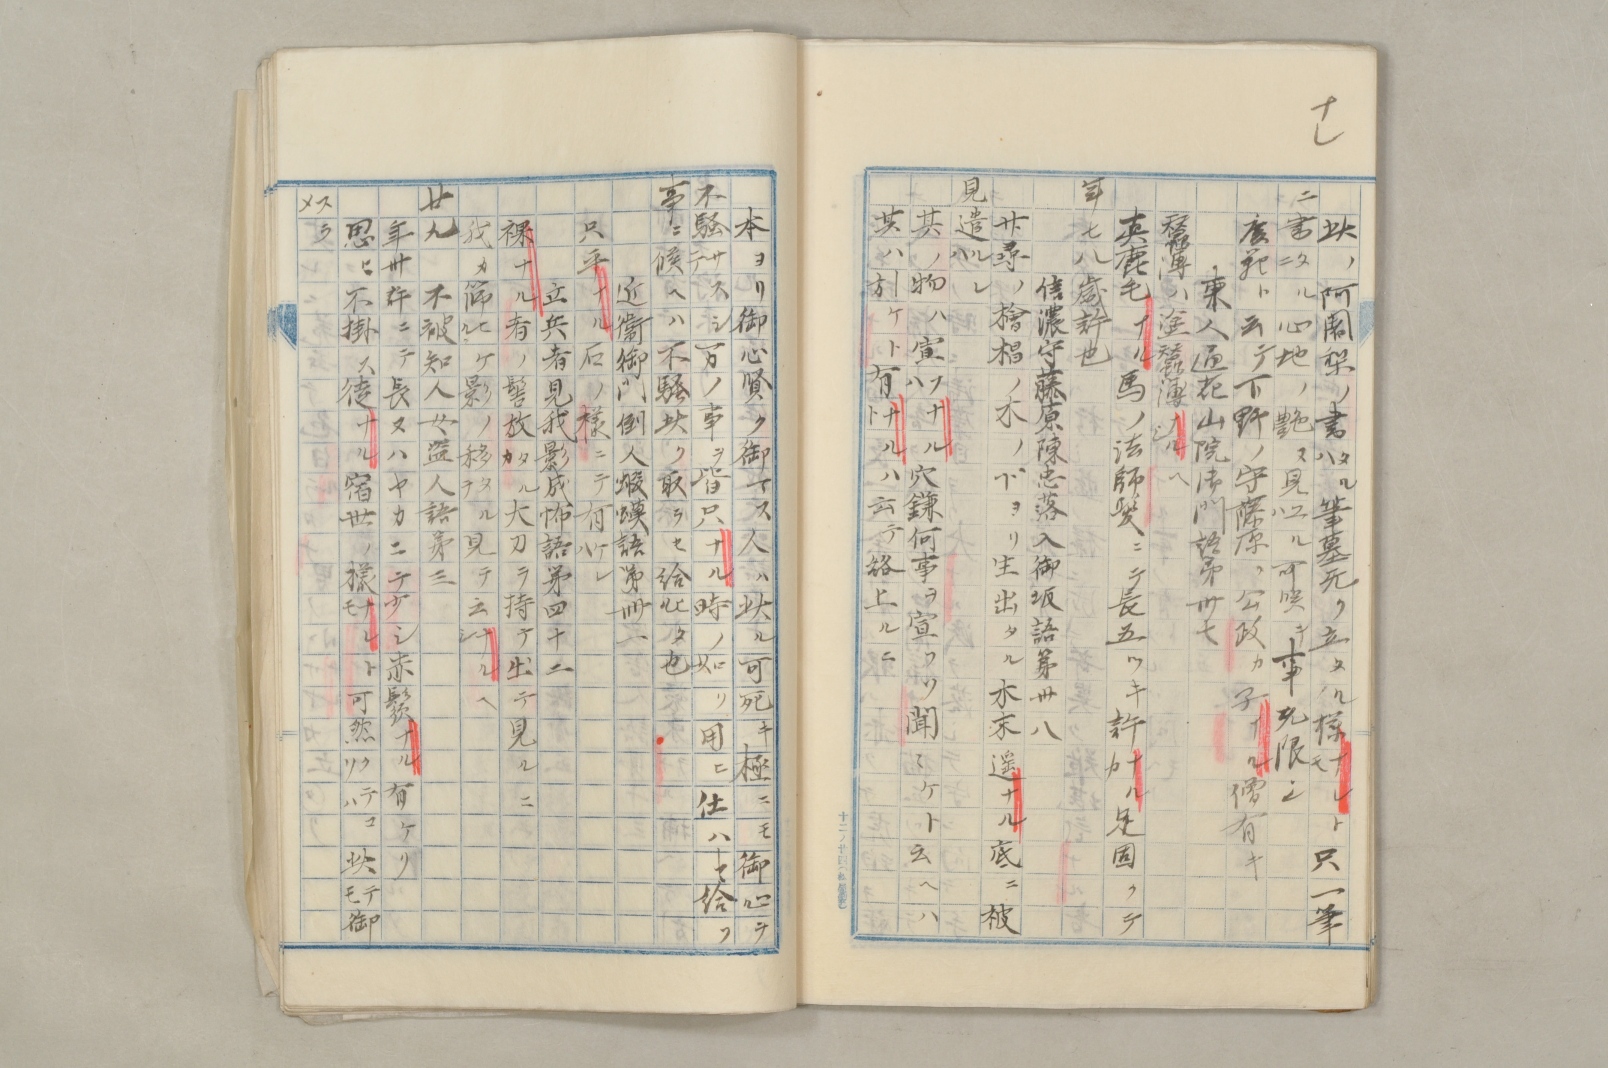 ナし
此ノ阿闍梨ノ書タル筆墓死ク立タル様ナレト只一筆
ニ書タル心地ノ艶ス見ユル可咲キ事无限シ
云テ下野ノ守藤原ノ公政カ子ナル僧有キ
東人通花山院御門語第卅七
蠶簿ハ塗蠶簿ナルヘシ
英鹿毛ナル馬ノ法師髪ニテ長五ツキ許ナルカ足固クテ
年七八歳許也
信濃守藤原陳忠落入御坂語第卅八
廿尋ノ檜椙ノ木ノ下ヨリ生出タル木末遥ナル底ニ被
見遣ルレハ
其ノ物ハ宣フナル穴鎌何事ヲ宣フソ聞ケト云ヘハ
其ハ引ケト有ナルハト云テ絡上ルニ
本ヨリ御心賢ク御マス人ハ此ル可死キ極ニモ御心ヲ
不騒サスシテ万ノ事ヲ皆只ナル時ノ如ク用ヒ仕ハセ給フ
事ニ候ヘハ不騒此ク取ラセ給ヒタル也
近衛御門倒人蝦蟆語第卅一
只平ナル石ノ様ニテ有ケレハ
立兵者見我影成怖語第四十二
裸ナル者ノ髻放タルカ大刀ヲ持テ出テ見ルニ
我カ影ノ移タルヲ見テ云ナルヘシ
廿九 不被知人女盗人語第三
年卅許ニテ長スハヤカニテ少シ赤鬚ナル有ケリ
思ヒ不掛ス徒ナル宿世ノ様ナレトモ可然クテコソハ此テモ御
メスラ